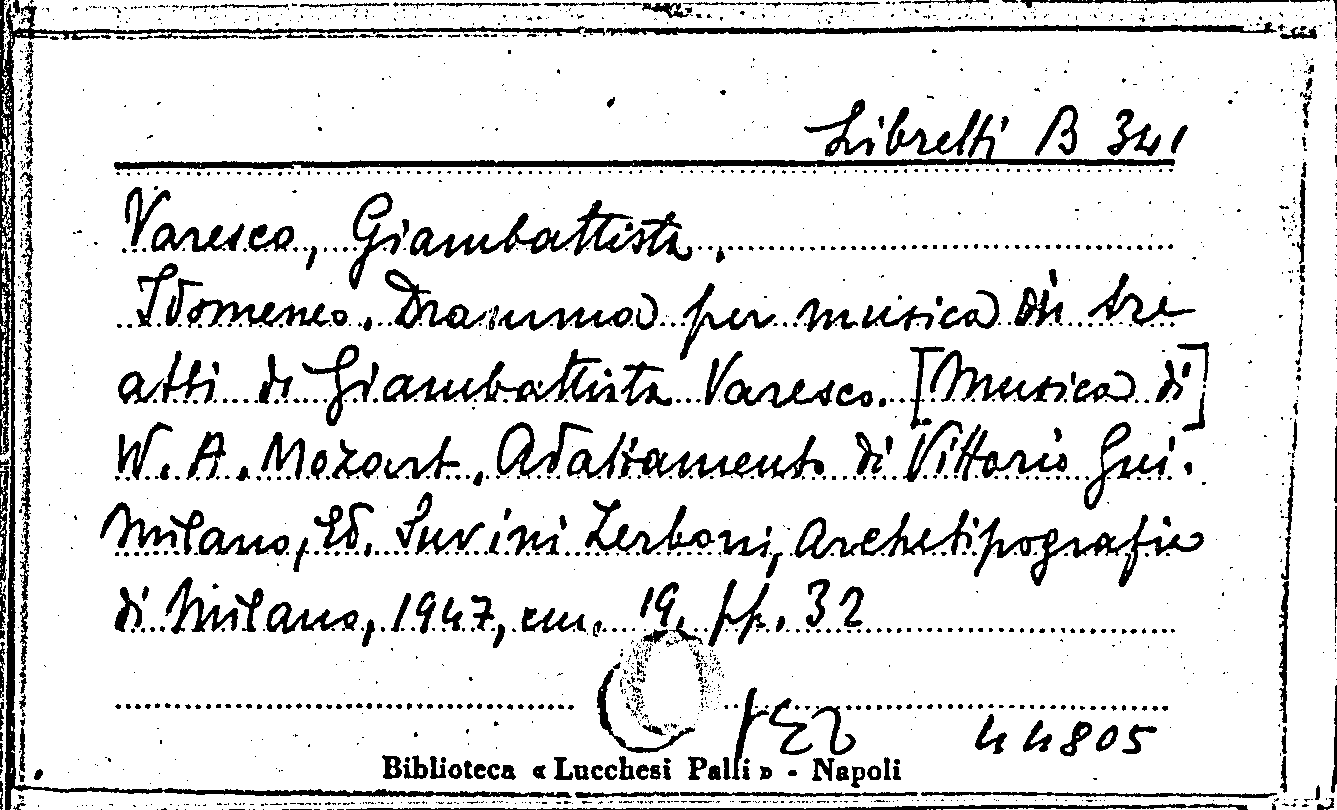 Libretti B 341
Varesco, Giambattista.
Idomeneo. Dramma per musica di tre
atti di Giambattista Varesco. [Musica di]
W. A. Mozart. Adattamento di Vittorio Gui.
Milano, Ed. Suvini Zerboni, Archetipografia
di Milano, 1947, cm. 19. pp. 32
44805
Biblioteca « Lucchesi Palli » - Napoli